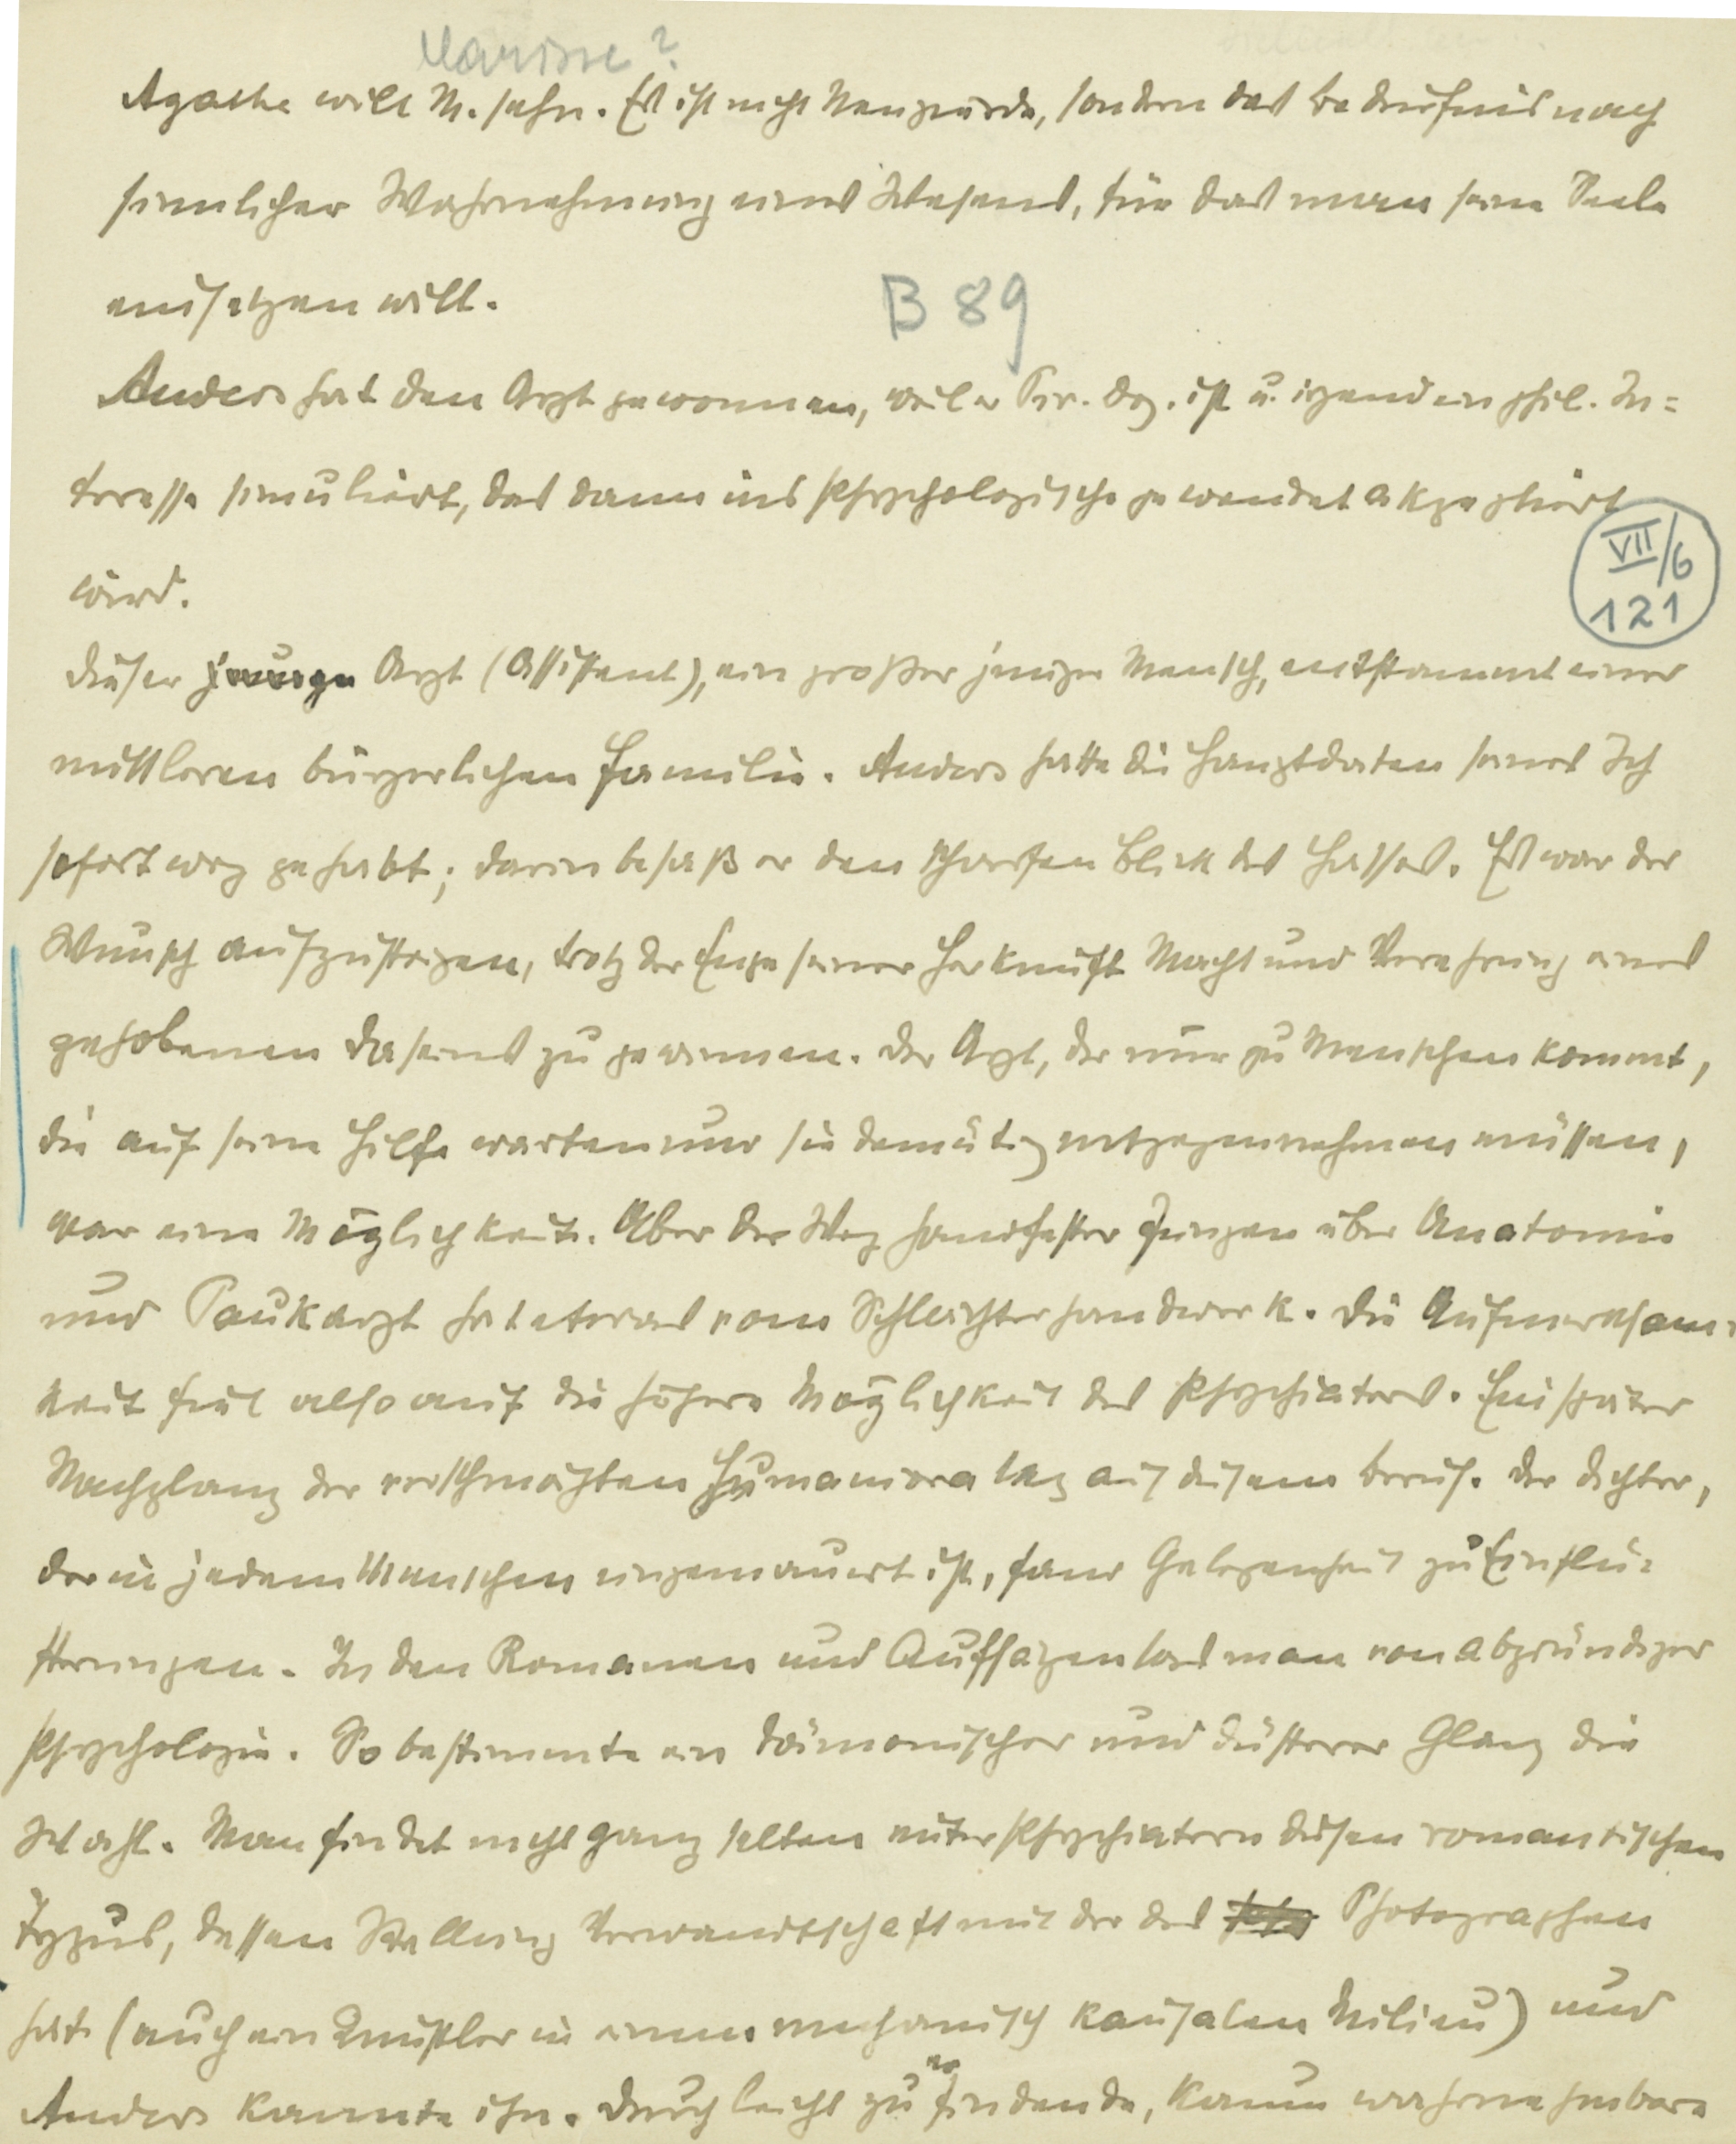 Agathe will M. sehn. Es ist nicht Neugierde, sondern das Bedürfnis nach
sinnlicher Wahrnehmung eines Wesens, für das man seine Seele
einsetzen will.
B 89
Anders hat den Arzt gewonnen, weil er Pr. Doz. ist u. irgend ein phil. In=
teresse simuliert, das dann ins Psychologische gewendet akzeptiert
wird.
VII/6
121
Dieser junge Arzt (Assistent), ein großer junger Mensch, entstammt einer
mittleren bürgerlichen Familie. Anders hatte die Hauptdaten seines Ich
sofort weg gehabt; darin besaß er den scharfen Blick des Hasses. Es war der
Wunsch aufzusteigen, trotz der Enge seiner Herkunft Macht und Verehrung eines
gehobenen Daseins zu gewinnen. Der Arzt, der nur zu Menschen kommt,
die auf seine Hilfe warten und sie demütig entgegennehmen müssen,
war eine Möglichkeit. Aber der Weg handfester Jungen über Anatomie
und Paukarzt hat etwas vom Schlächterhandwerk. Die Aufmerksam=
keit fiel also auf die höhere Möglichkeit des Psychiaters. Ein später
Nachglanz der verschmähten Humaniora lag auf diesem Beruf. Der Dichter,
der in jedem Menschen eingemauert ist, fand Gelegenheit zu Einflü=
sterungen. In den Romanen und Aufsäzen las man von abgründiger
Psychologie. So bestimmte ein dämonischer und düsterer Glanz die
Wahl. Man findet nicht ganz selten unter Psychiatern diesen romantischen
Typus, dessen Stellung Verwandtschaft mit der des Photographen
hat (auch ein Künstler in einem mechanisch kausalen Milieu) und
Anders kannte ihn. Durch leicht zu findende, kaum wahrnehmbare